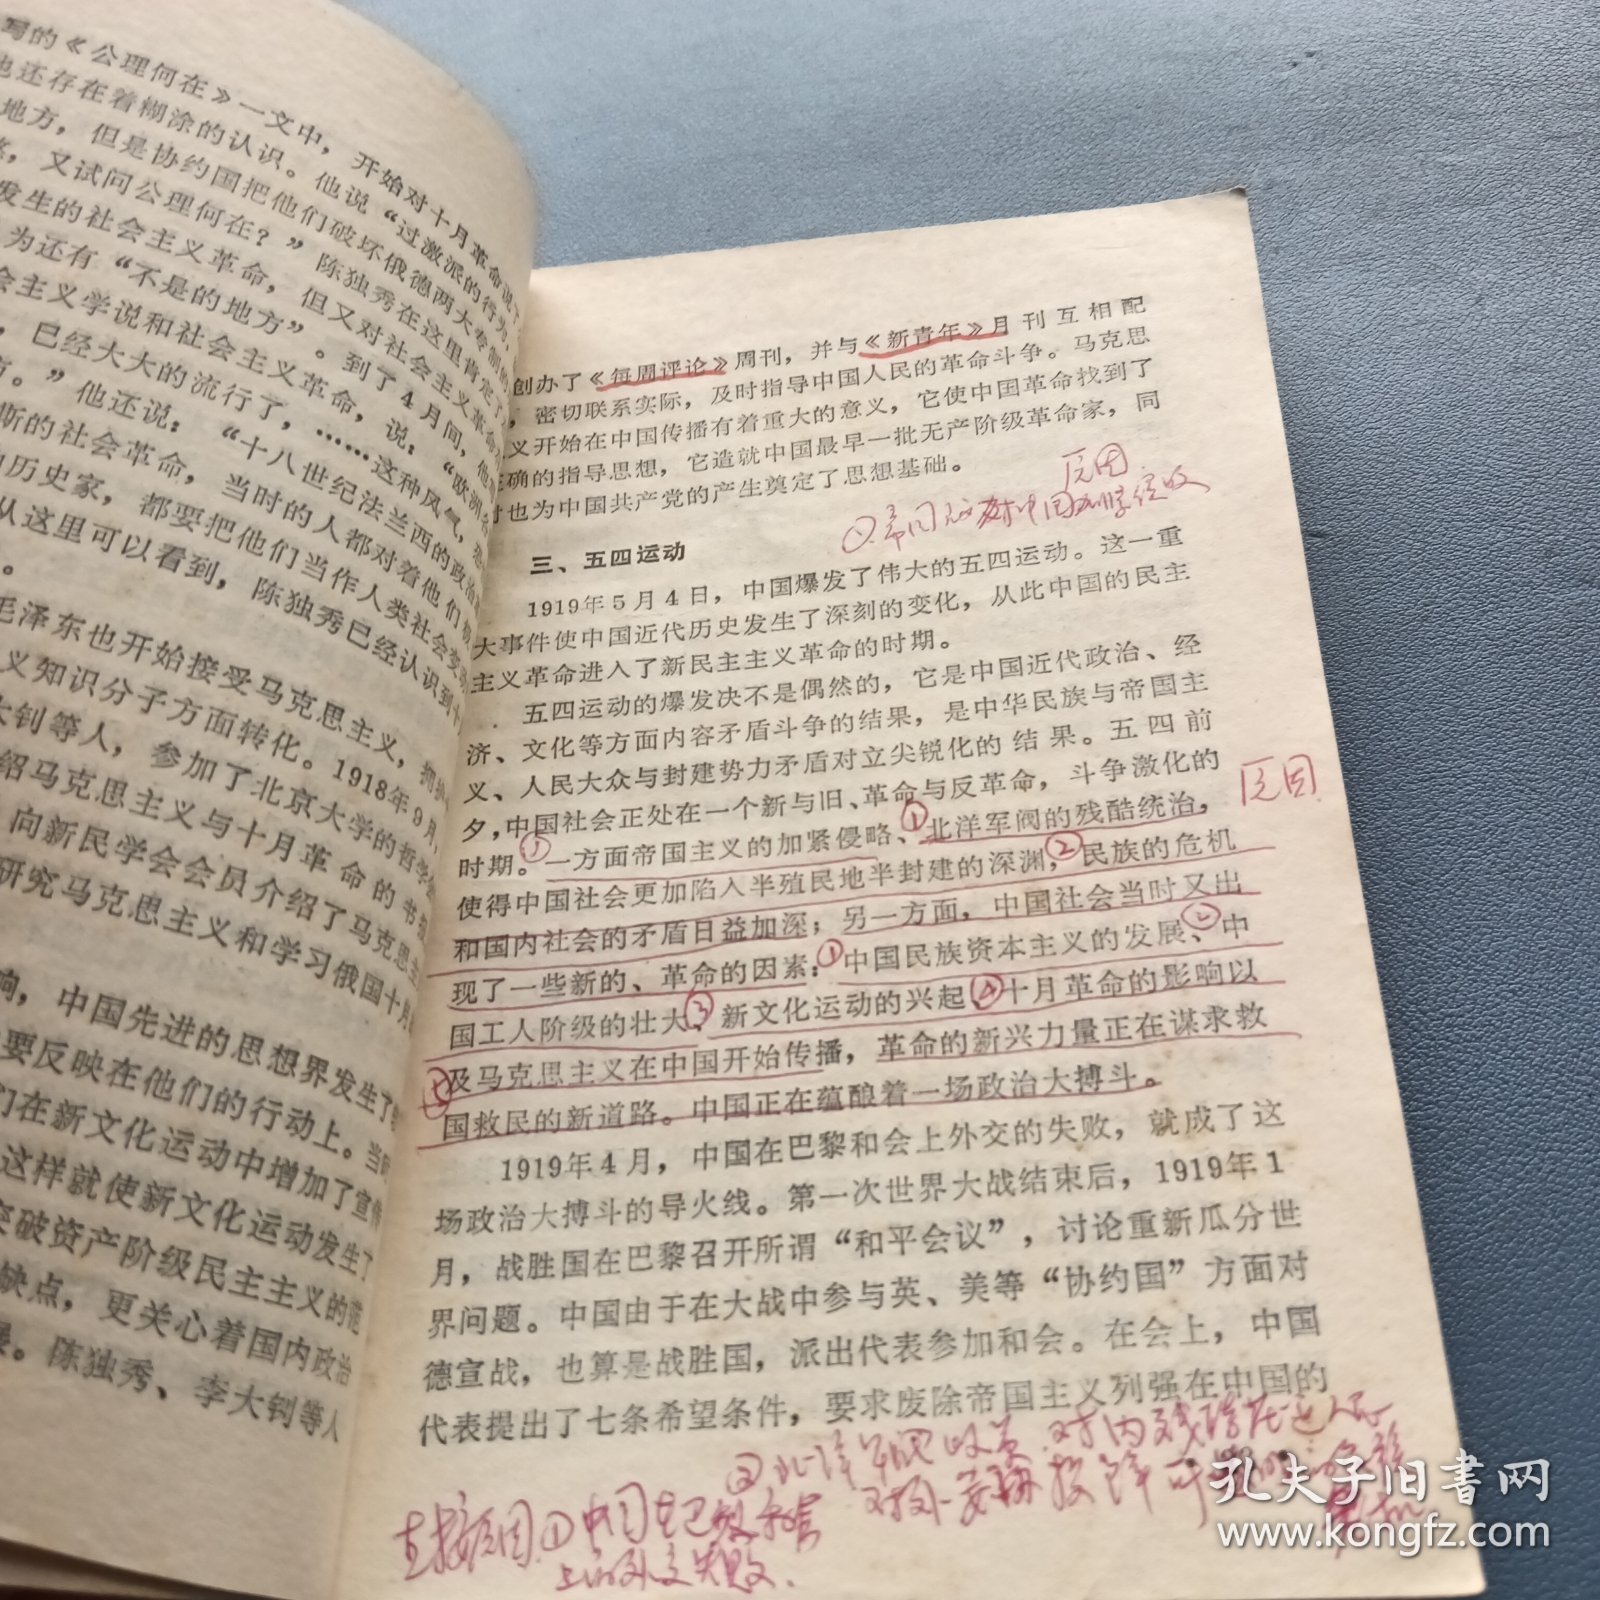 写的《公理何在》一文中，开始对十月革命说了
他还存在着糊涂的认识。他说“过激派的行为，
地方，但是协约国把他们破坏俄德两大专制的
，又试问公理何在？”陈独秀在这里肯定了
发生的社会主义革命，但又对社会主义革命
为还有“不是的地方”。到了4月间，他
会主义学说和社会主义革命，说：“欧洲各
，已经大大的流行了，……这种风气，恐
。”他还说：“十八世纪法兰西的政治
斯的社会革命，当时的人都对着他们
历史家，都要把他们当作人类社会变动
从这里可以看到，陈独秀已经认识到十
。
毛泽东也开始接受马克思主义，拥护
义知识分子方面转化。1918年9月，
大钊等人，参加了北京大学的哲学
绍马克思主义与十月革命的书
向新民学会会员介绍了马克思主
研究马克思主义和学习俄国十月
响，中国先进的思想界发生了
要反映在他们的行动上。当时
们在新文化运动中增加了宣传
这样就使新文化运动发生了
突破资产阶级民主主义的范
缺点，更关心着国内政治
展。陈独秀、李大钊等人
创办了《每周评论》周刊，并与《新青年》月刊互相配
，密切联系实际，及时指导中国人民的革命斗争。马克思
义开始在中国传播有着重大的意义，它使中国革命找到了
正确的指导思想，它造就中国最早一批无产阶级革命家，同
时也为中国共产党的产生奠定了思想基础。
原因
三、五四运动
1919年5月4日，中国爆发了伟大的五四运动。这一重
大事件使中国近代历史发生了深刻的变化，从此中国的民主
主义革命进入了新民主主义革命的时期。
五四运动的爆发决不是偶然的，它是中国近代政治、经
济、文化等方面内容矛盾斗争的结果，是中华民族与帝国主
义、人民大众与封建势力矛盾对立尖锐化的结果。五四前
夕，中国社会正处在一个新与旧、革命与反革命，斗争激化的
时期。①一方面帝国主义的加紧侵略、①北洋军阀的残酷统治，
原因
使得中国社会更加陷入半殖民地半封建的深渊，②民族的危机
和国内社会的矛盾日益加深；另一方面，中国社会当时又出
现了一些新的、革命的因素：①中国民族资本主义的发展、②中
国工人阶级的壮大、③新文化运动的兴起、④十月革命的影响以
⑤及马克思主义在中国开始传播，革命的新兴力量正在谋求救
国救民的新道路。中国正在蕴酿着一场政治大搏斗。
1919年4月，中国在巴黎和会上外交的失败，就成了这
场政治大搏斗的导火线。第一次世界大战结束后，1919年1
月，战胜国在巴黎召开所谓“和平会议”，讨论重新瓜分世
界问题。中国由于在大战中参与英、美等“协约国”方面对
德宣战，也算是战胜国，派出代表参加和会。在会上，中国
代表提出了七条希望条件，要求废除帝国主义列强在中国的
②北洋军阀政府对内残酷压迫人民
直接原因①中国在巴黎和会
上的外交失败.
孔夫子旧书网
www.kongfz.com